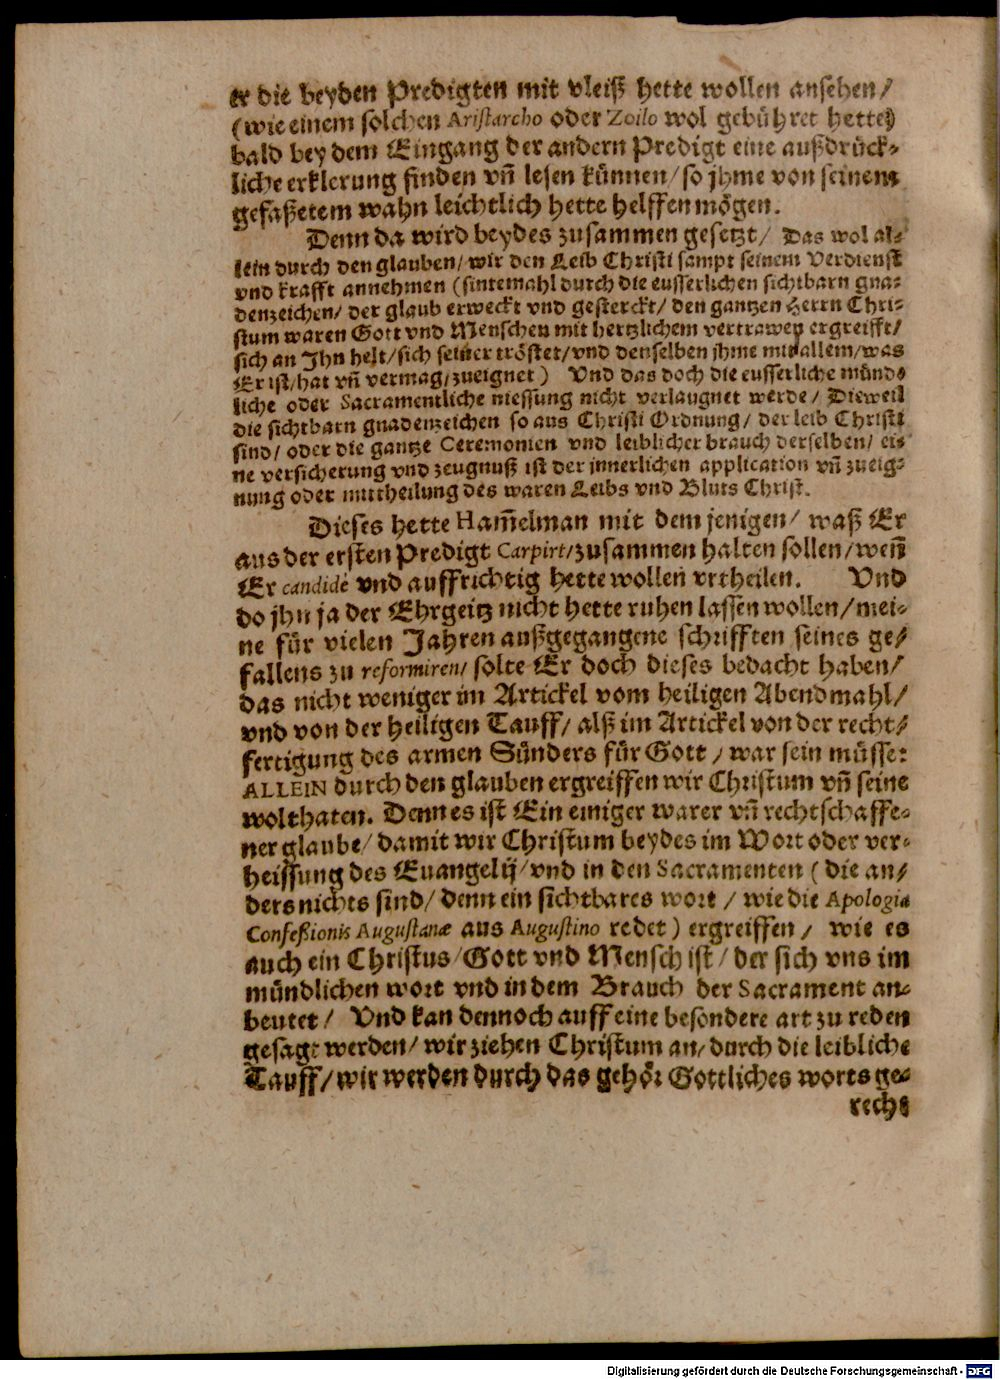 er die beyden Predigten mit vleiß hette wollen ansehen/
(wie einem solchen Aristarcho oder Zoilo wol gebühret hette)
bald bey dem Eingang der andern Predigt eine außdrück-
liche erklerung finden vñ lesen künnen/ so jhme von seinem
gefaßetem wahn leichtlich hette helffen mögen.
Denn da wird beydes zusammen gesetzt/ Das wol al-
lein durch den glauben/ wir den Leib Christi sampt seinem Verdienst
vnd krafft annehmen (sintemahl durch die eusserlichen sichtbarn gna-
denzeichen/ der glaub erweckt vnd gesterckt/ den gantzen Herrn Chri-
stum waren Gott vnd Menschen mit hertzlichem vertrawen ergreifft/
sich an Jhn helt/ sich seiner tröstet/ vnd denselben jhme mit allem/ was
Er ist/ hat vñ vermag/ zueignet) Vnd das doch die eusserliche münd-
liche oder Sacramentliche niessung nicht verlaugnet werde/ Dieweil
die sichtbarn gnadenzeichen so aus Christi Ordnung/ der leib Christi
sind/ oder die gantze Ceremonien vnd leiblicher brauch derselben/ ei-
ne versicherung vnd zeugnuß ist der innerlichen application vñ zueig-
nung oder mittheilung des waren Leibs vnd Bluts Christ.
Dieses hette Ham̃elman mit dem jenigen/ waß Er
aus der ersten Predigt Carpirt/ zusammen halten sollen/ weñ
Er candidè vnd auffrichtig hette wollen vrtheilen. Vnd
do jhn ja der Ehrgeitz nicht hette ruhen lassen wollen/ mei-
ne für vielen Jahren außgegangene schrifften seines ge-
fallens zu reformiren/ solte Er doch dieses bedacht haben/
das nicht weniger im Artickel vom heiligen Abendmahl/
vnd von der heiligen Tauff/ alß im Artickel von der recht-
fertigung des armen Sünders für Gott/ war sein müsse:
ALLEIN durch den glauben ergreiffen wir Christum vñ seine
wolthaten. Denn es ist Ein einiger warer vñ rechtschaffe-
ner glaube/ damit wir Christum beydes im Wort oder ver-
heissung des Euangelij/ vnd in den Sacramenten (die an-
ders nichts sind/ denn ein sichtbares wort/ wie die Apologia
Confeßionis Augustanæ aus Augustino redet) ergreiffen/ wie es
auch ein Christus/ Gott vnd Mensch ist/ der sich vns im
mündlichen wort vnd in dem Brauch der Sacrament an-
beutet/ Vnd kan dennoch auff eine besondere art zu reden
gesagt werden/ wir ziehen Christum an/ durch die leibliche
Tauff/ wir werden durch das gehör Gottliches worts ge-
recht
Digitalisierung gefördert durch die Deutsche Forschungsgemeinschaft - DFG